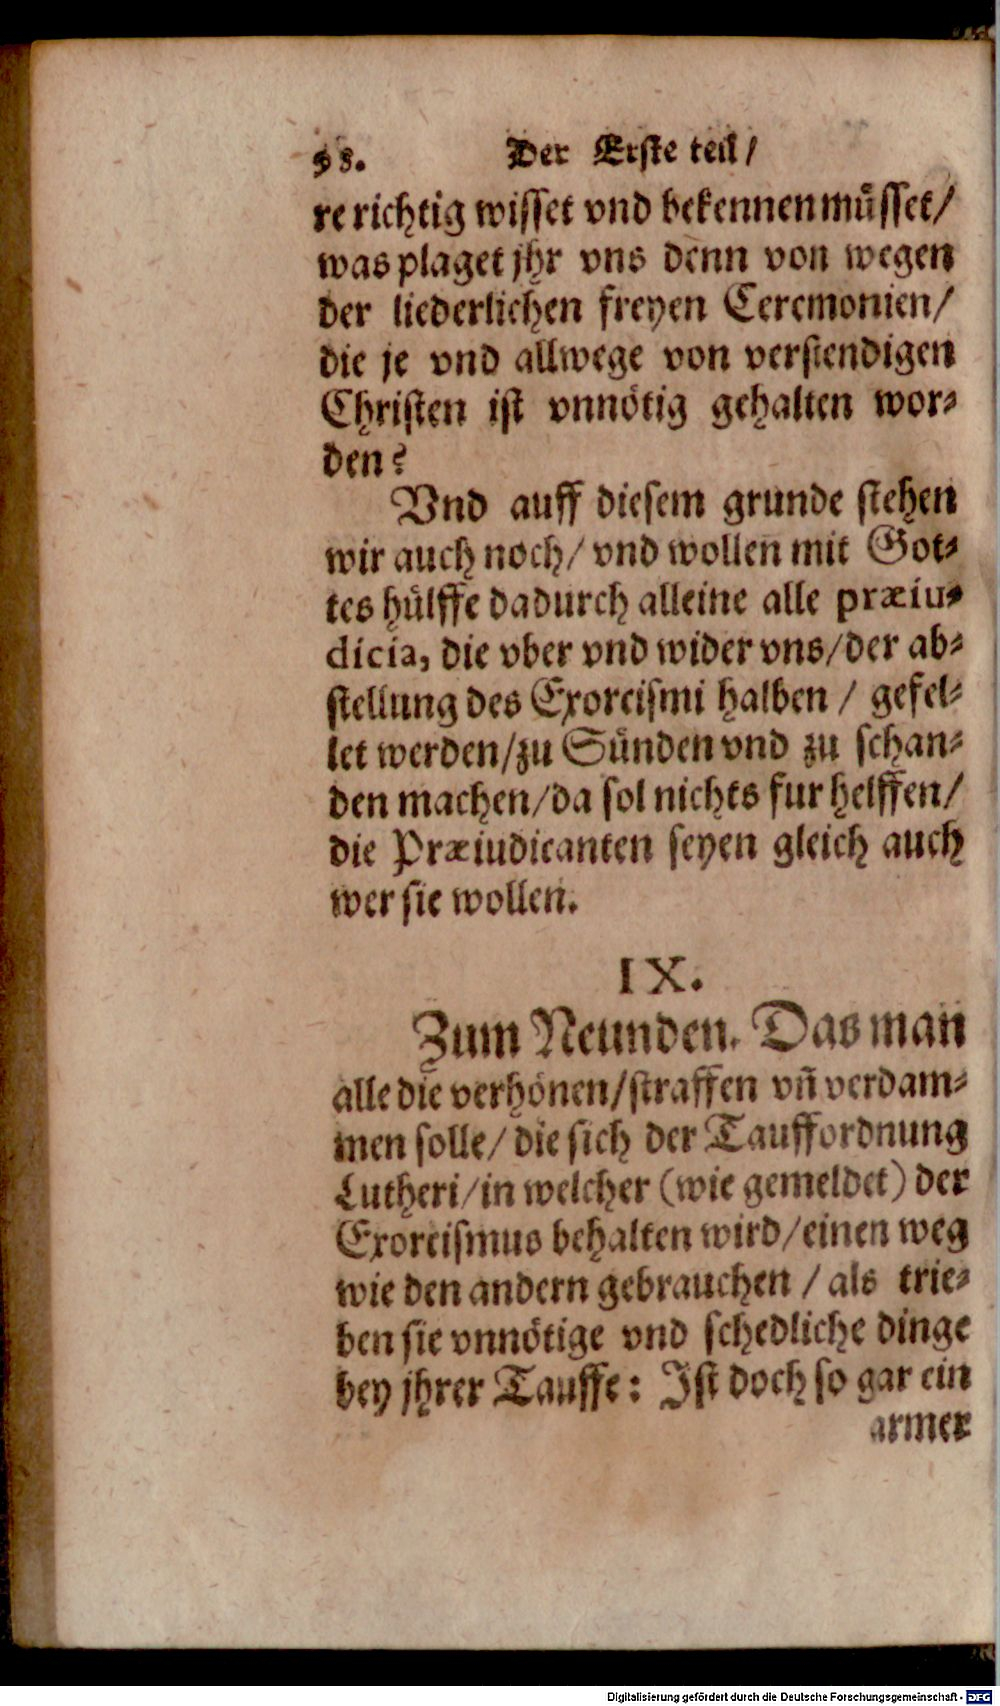 98. Der Erste teil/
re richtig wisset vnd bekennen müsset/
was plaget jhr vns denn von wegen
der liederlichen freyen Ceremonien/
die je vnd allwege von verstendigen
Christen ist vnnötig gehalten wor-
den?
Vnd auff diesem grunde stehen
wir auch noch/ vnd wollen mit Got-
tes hülffe dadurch alleine alle præiu-
dicia, die vber vnd wider vns/der ab-
stellung des Exorcismi halben / gefel-
let werden/zu Sünden vnd zu schan-
den machen/da sol nichts fur helffen/
die Præiudicanten seyen gleich auch
wer sie wollen.
IX.
Zum Neunden. Das man
alle die verhönen/straffen vñ verdam-
men solle/ die sich der Tauffordnung
Lutheri/in welcher (wie gemeldet) der
Exorcismus behalten wird/einen weg
wie den andern gebrauchen / als trie-
ben sie vnnötige vnd schedliche dinge
bey jhrer Tauffe: Ist doch so gar ein
armer
Digitalisierung gefördert durch die Deutsche Forschungsgemeinschaft - DFG